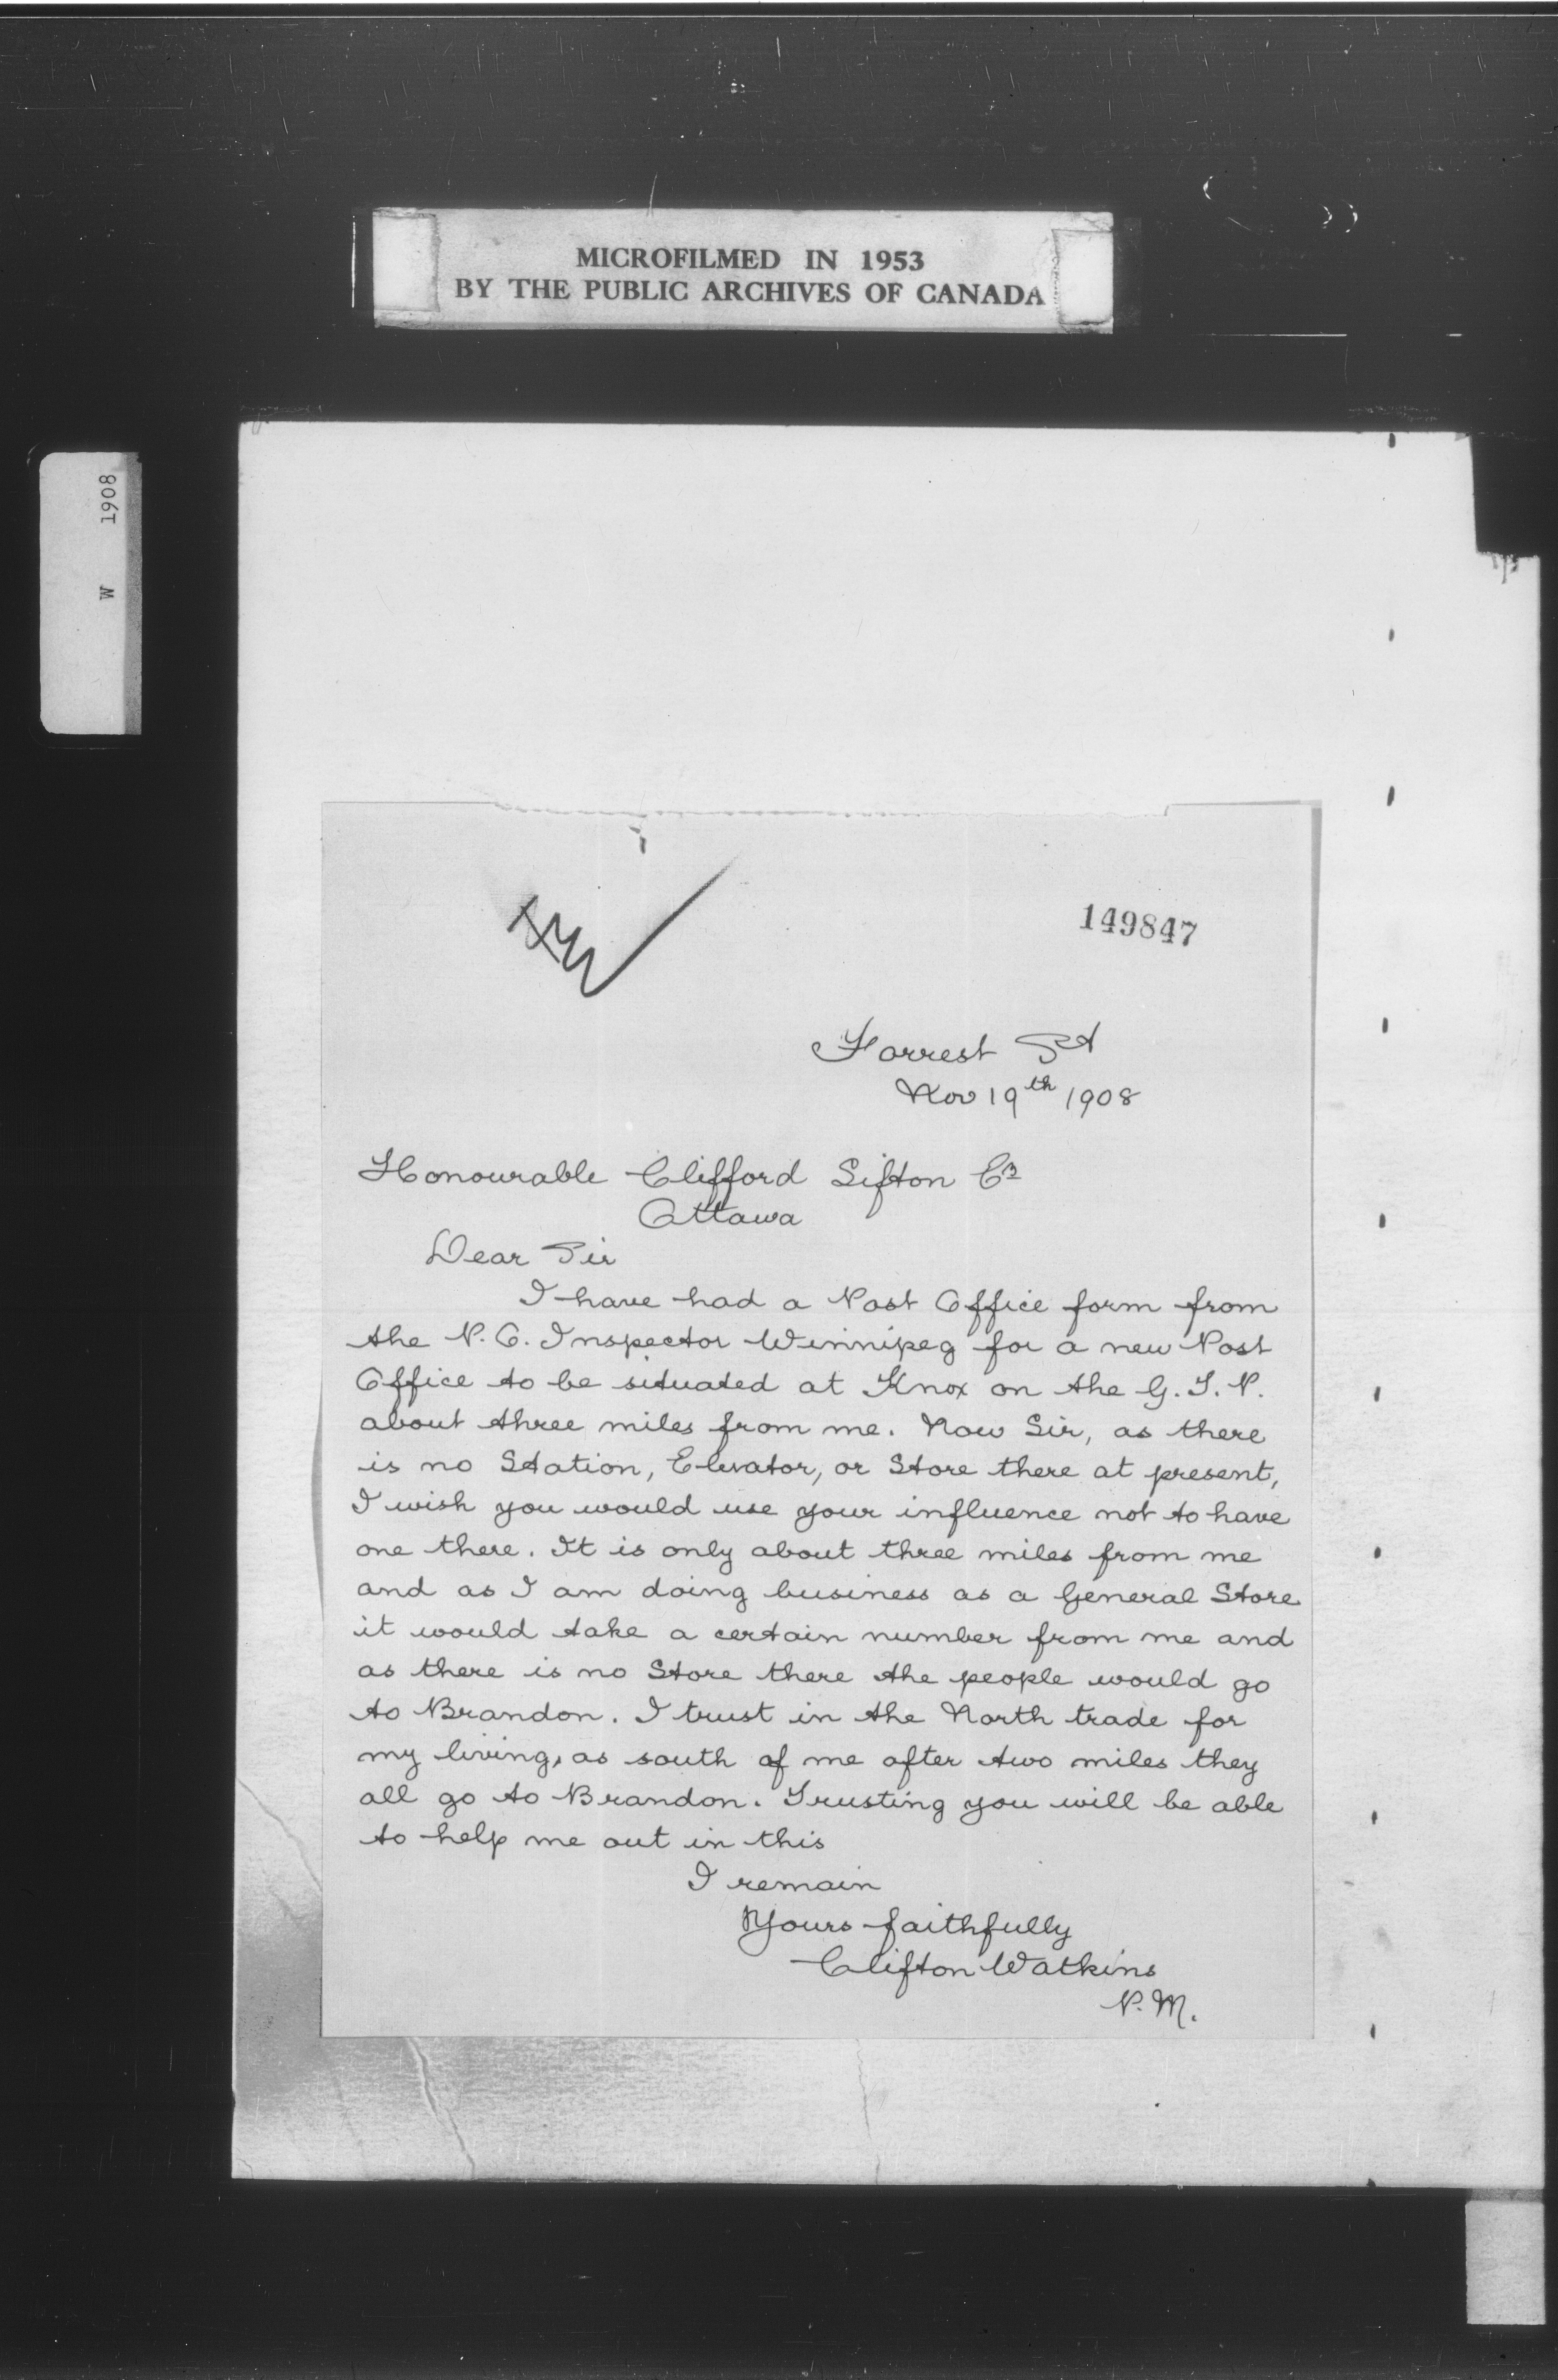 MICROFILMED IN 1953
BY THE PUBLIC ARCHIVES OF CANADA
W 1908
149847
Forrest St
Nov 19th 1908
Honourable Clifford Sifton
Ottawa
Dear Sir
I have had a Post Office form from
the P.O. Inspector Winnipeg for a new Post
Office to be situated at Knox on the G.T.P.
about three miles from me. Now Sir, as there
is no Station, Elevator, or Store there at present,
I wish you would use your influence not to have
one there. It is only about three miles from me
and as I am doing business as a General Store
it would take a certain number from me and
as there is no Store there the people would go
to Brandon. I trust in the North trade for
my living, as south of me after two miles they
all go to Brandon. Trusting you will be able
to help me out in this
I remain
Yours faithfully
Clifton Watkins
P.M.